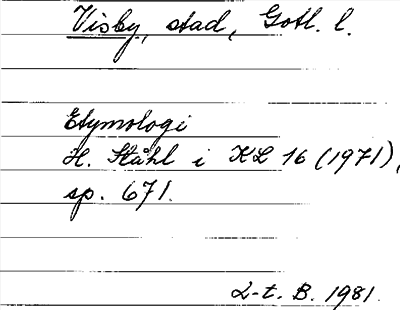 Visby, stad, Gotl. l.
Etymologi
H. Ståhl i KL 16 (1971),
sp. 671.
L-t. B. 1981.